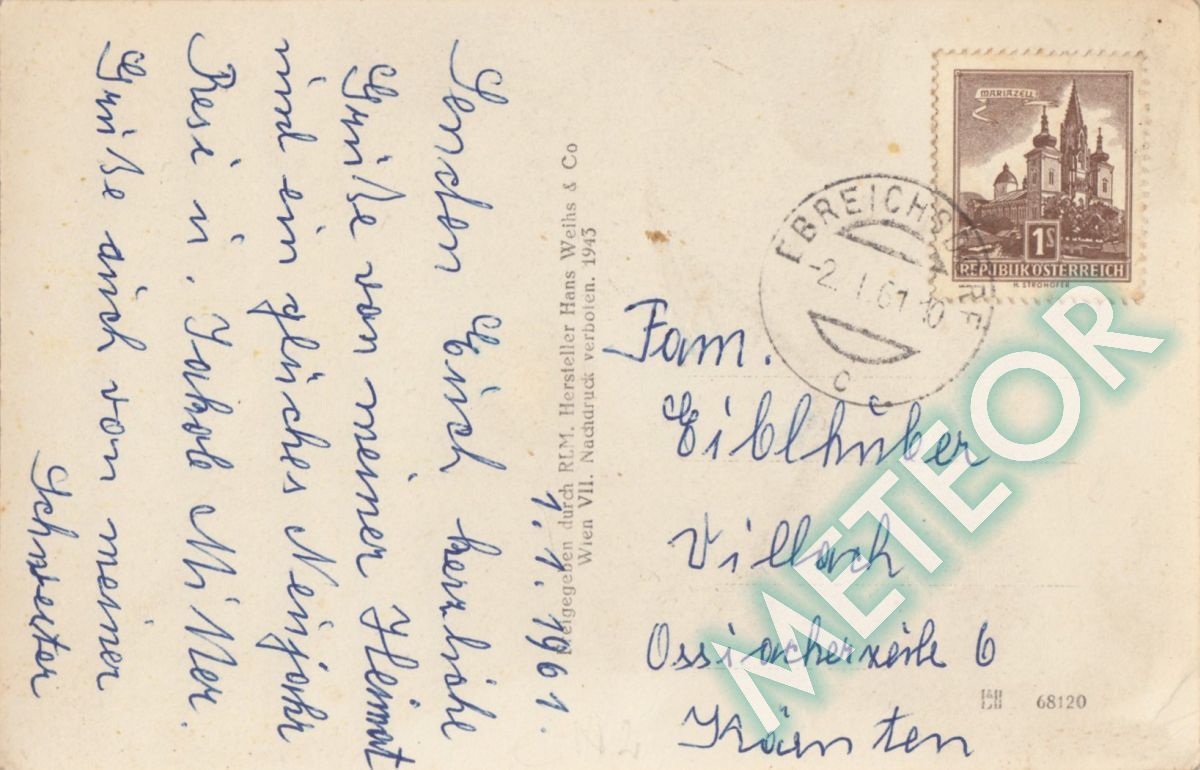 1. 1. 1961.
Senden Euch herzliche
Grüße von meiner Heimat
und ein glüches Neujahr
Resi u. Jakob Miller.
Grüße auch von meiner
Schwester
Freigegeben durch RLM. Hersteller Hans Weihs & Co
Wien VII. Nachdruck verboten. 1943
MARIAZELL
1S
REPUBLIK ÖSTERREICH
H. STROHOFER
EBREICHSDORF
-2. I. 61-10
c
Fam.
Eiblhuber
Villach
Ossiacherzeile 6
Kärnten
68120
METEOR